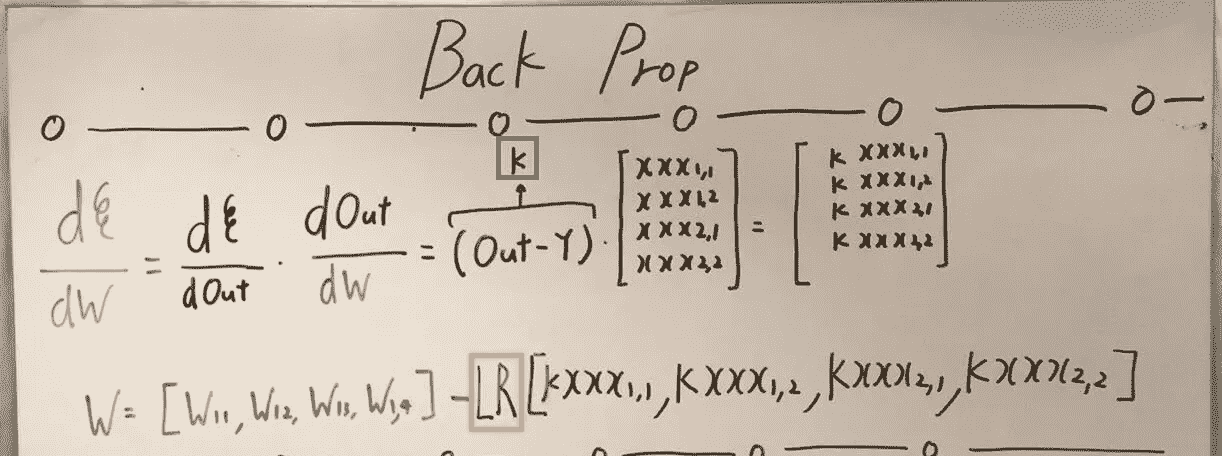 Back Prop
k
dξ/dW = dξ/dOut · dOut/dW = (Out-Y) · [XXX1,1 XXX1,2 XXX2,1 XXX2,2] = [k XXX1,1 k XXX1,2 k XXX2,1 k XXX2,2]
W = [W11, W12, W13, W1,4] - LR [kXXX1,1, kXXX1,2, kXXX2,1, kXXX2,2]